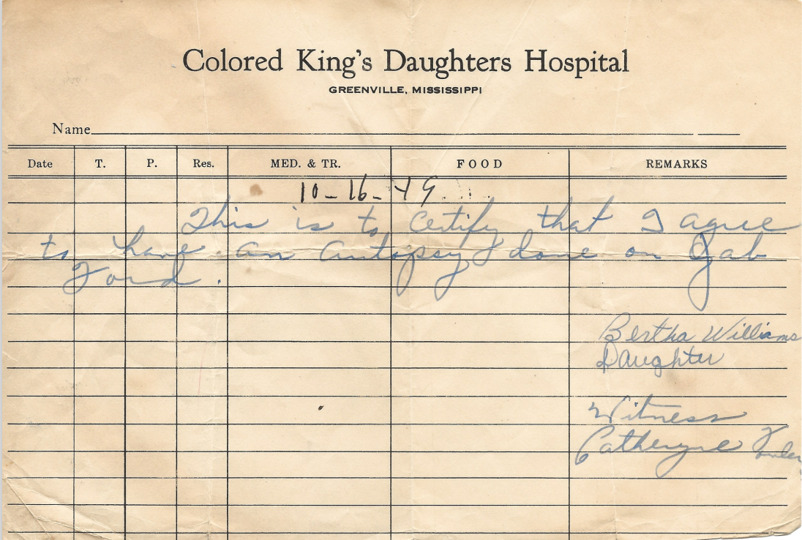 Colored King's Daughters Hospital
GREENVILLE, MISSISSIPPI
Name
Date T. P. Res. MED. & TR. FOOD REMARKS
10-16-49
This is to certify that I agree
to have an autopsy done on Gab
Ford.
Bertha Williams
Daughter
Witness
Catheryne